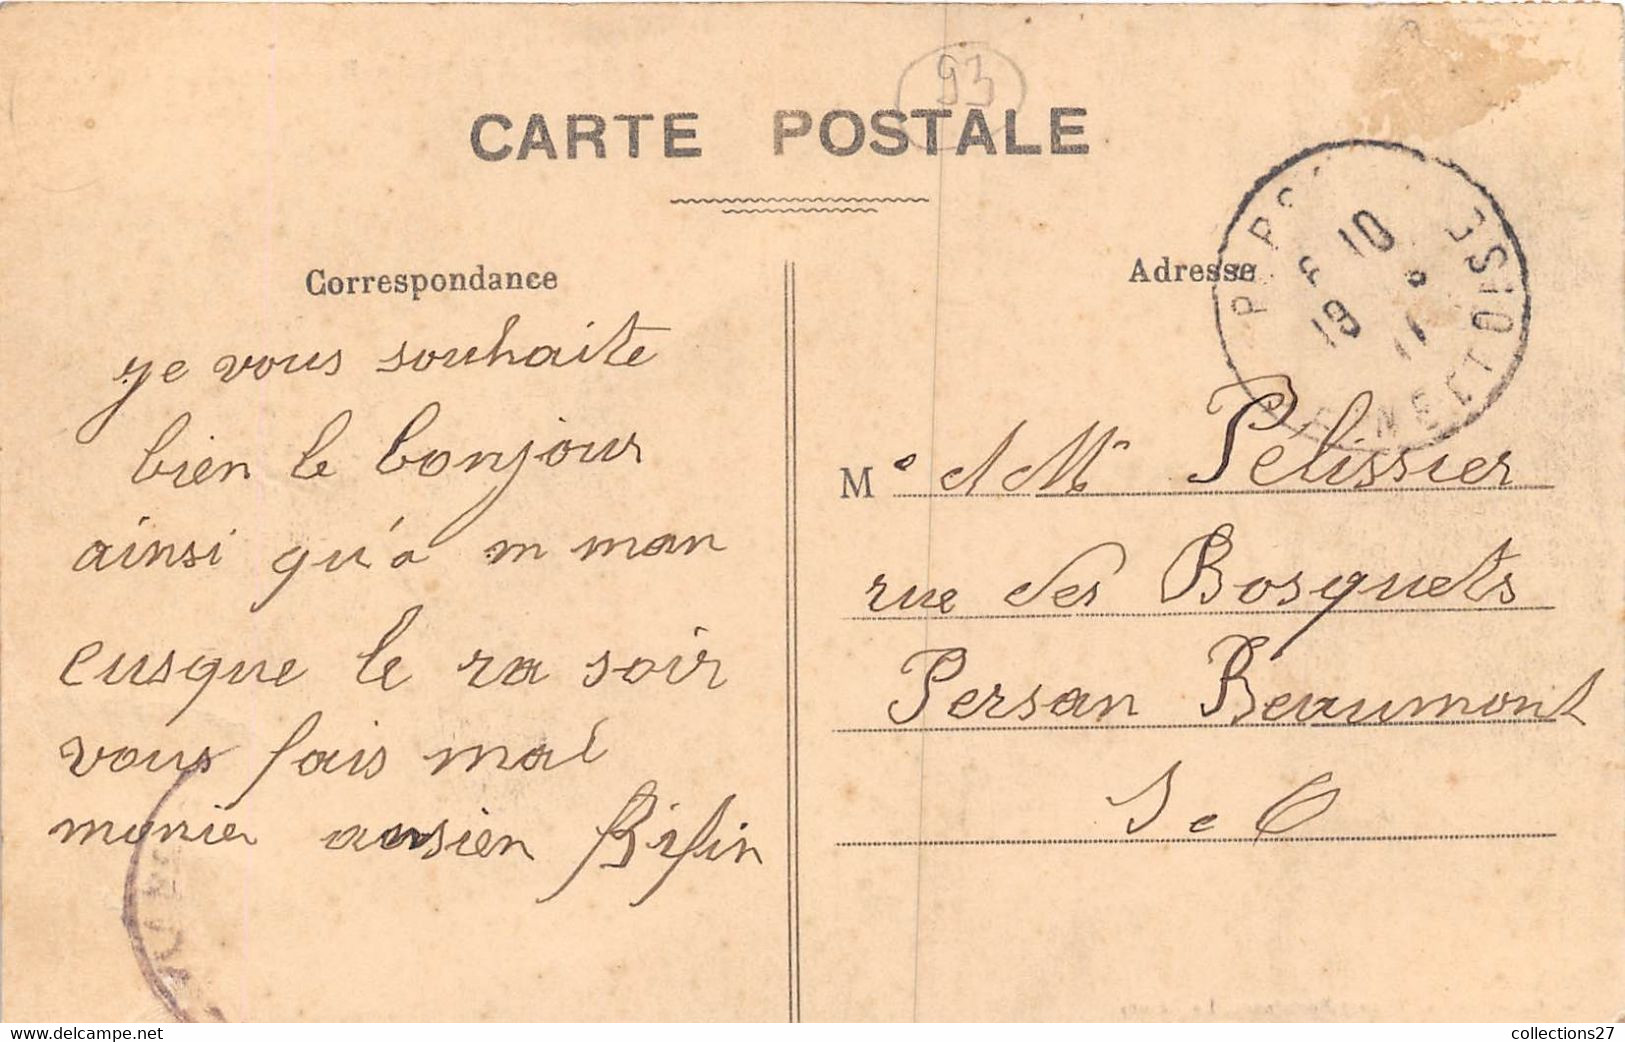 93
CARTE POSTALE
Correspondance
je vous souhaite
bien le bonjour
ainsi qu'a m man
eusque le ra soir
vous fais mal
monier
Adresse
F 10
19
11
ET OISE
Me et Mr Pélissier
rue des Bosquets
Persan Beaumont
S e O
collections27